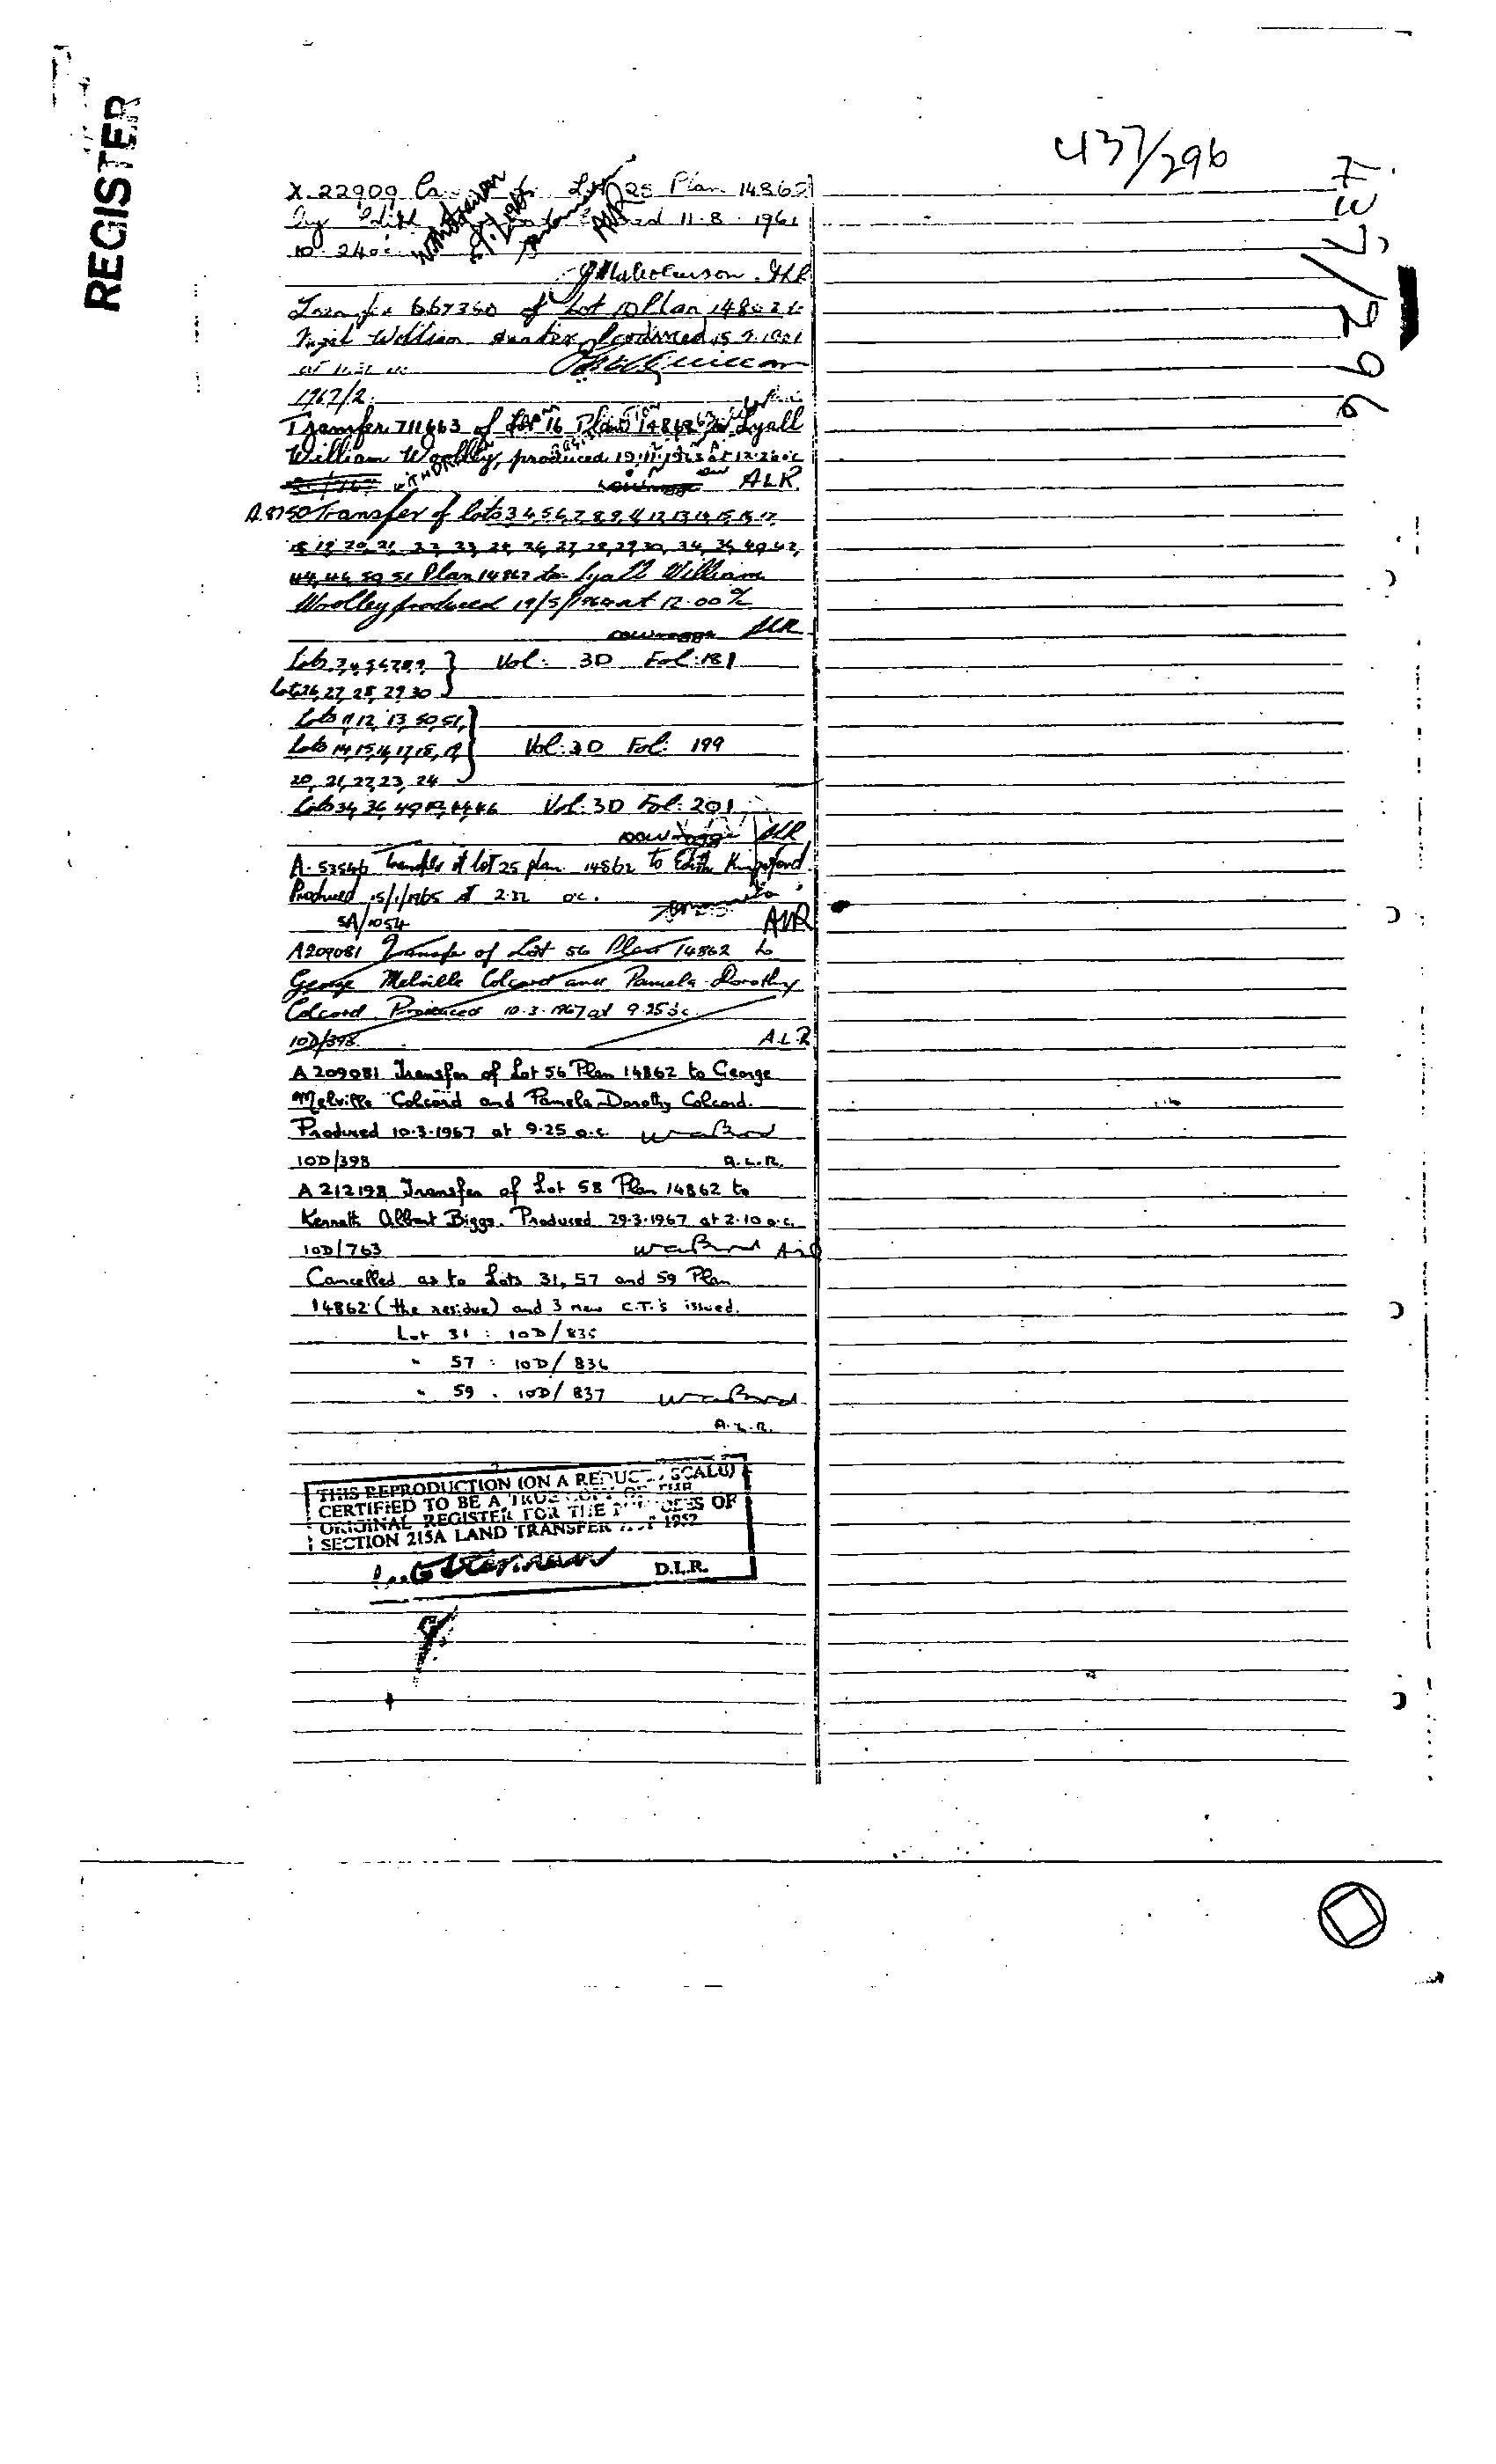 REGISTER
437/296
437/296
X.22909 Lot 25 Plan 14862
by Edith 11.8.1961
10.24 o.c.
Withdrawn
ALR
Transfer 667360 of Lot 10 Plan 14862 to
William produced 15.9.1961
at
1967/2
Transfer 711663 of Lot 16 Plan 14862 to Lyall
William Woolley, produced 19.11.1963 at 12.26 o.c
ALR
A.8750 Transfer of lots 3,4,5,6,7,8,9,11,12,13,14,15,16,17,
18,19,20,21,22,23,24,26,27,28,29,30,34,36,40,42,
44,46,50,51 Plan 14862 to Lyall William
Woolley produced 19/5/1964 at 12.00 o/c
ALR
Lots 3,4,5,6,7,8,9 } Vol: 3D Fol: 181
Lots 26,27,28,29,30
Lots 11,12,13,50,51,
Lots 14,15,16,17,18,19 } Vol: 3D Fol: 199
20,21,22,23,24
Lots 34,36,40,42,44,46 Vol: 3D Fol: 201
ALR
A.53546 Transfer of lot 25 plan 14862 to Edith Kingsford
Produced 15/1/1965 at 2.32 o.c.
5A/1054
ALR
A209081 Transfer of Lot 56 Plan 14862 to
George Melville Colcord and Pamela Dorothy
Colcord. Produced 10.3.1967 at 9.25 o.c.
10D/398 A.L.R
A209081 Transfer of Lot 56 Plan 14862 to George
Melville Colcord and Pamela Dorothy Colcord.
Produced 10.3.1967 at 9.25 o.c.
10D/398 A.L.R.
A212198 Transfer of Lot 58 Plan 14862 to
Kenneth Albert Biggs. Produced 29.3.1967 at 2.10 o.c.
10D/763
Cancelled as to Lots 31, 57 and 59 Plan
14862 (the residue) and 3 new C.T.'s issued.
Lot 31 : 10D/835
" 57 : 10D/836
" 59 . 10D/837
A.L.R.
THIS REPRODUCTION (ON A REDUCED SCALE)
CERTIFIED TO BE A TRUE COPY OF THE
ORIGINAL REGISTER FOR THE PURPOSES OF
SECTION 215A LAND TRANSFER ACT 1952
D.L.R.